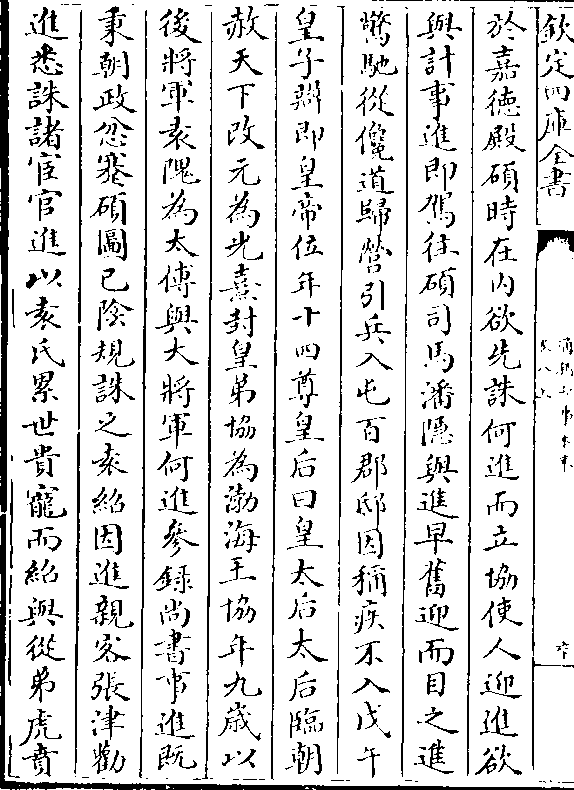 欽定四庫全書
於嘉徳殿碩時在内欲先誅何進而立協使人迎進欲
與計事進即駕往碩司馬潘隱與進早舊迎而目之進
驚馳從儳道歸營引兵入屯百郡邸因稱疾不入戊午
皇子辯即皇帝位年十四尊皇后曰皇太后太后臨朝
赦天下改元為光熹封皇弟協為渤海王協年九歳以
後將軍袁隗為太傅與大將軍何進參録尚書事進既
秉朝政忿蹇碩圖已陰規誅之袁紹因進親客張津勸
進悉誅諸宦官進以袁氏累世貴寵而紹與從弟虎賁